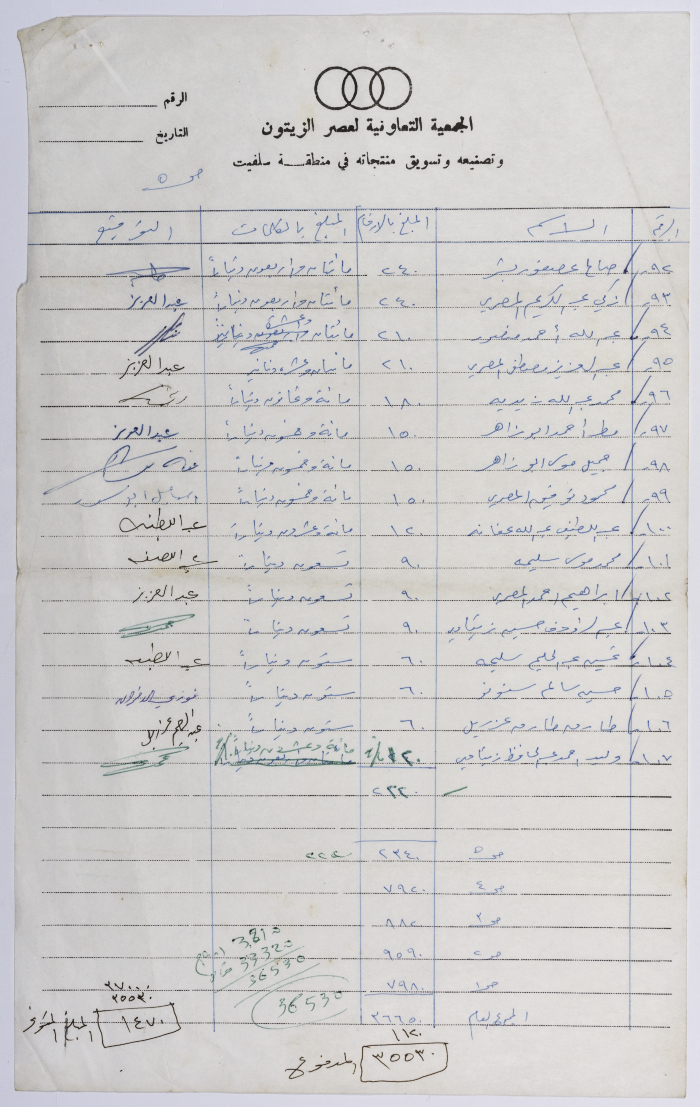 الرقم
التاريخ
الجمعية التعاونية لعصر الزيتون
وتصنيعه وتسويق منتجاته في منطقة سلفيت
ص ٥
الرقم الاسم المبلغ بالارقام المبلغ بالكلمات التوقيع
٩٢ ٢٤٠ مائتان واربعون ديناراً
٩٣ زكي عبد الكريم المصري ٢٤٠ مائتان واربعون ديناراً عبد العزيز
٩٤ عبد الله أحمد منصور ٢١٠ مائتان وعشرة دنانير
٩٥ عبد العزيز مصطفى المصري ٢١٠ مائتان وعشرة دنانير عبد العزيز
٩٦ محمد عبد الله ١٨٠ مائة وثمانون ديناراً
٩٧ مطر أحمد ابو زاهر ١٥٠ مائة وخمسون ديناراً عبد العزيز
٩٨ جميل موسى ابو زاهر ١٥٠ مائة وخمسون ديناراً
٩٩ محمود توفيق المصري ١٥٠ مائة وخمسون ديناراً
١٠٠ عبد اللطيف عبد الله عفانه ١٢٠ مائة وعشرون ديناراً عبد اللطيف
١٠١ محمد موسى سليمه ٩٠ تسعون ديناراً عبد اللطيف
١٠٢ ابراهيم احمد المصري ٩٠ تسعون ديناراً عبد العزيز
١٠٣ عبد الرؤوف حسين زيتاوي ٩٠ تسعون ديناراً
١٠٤ تحسين عبد الحليم سليمه ٦٠ ستون ديناراً عبد اللطيف
١٠٥ حسين سالم ٦٠ ستون ديناراً
١٠٦ طارق طارق عزريل ٦٠ ستون ديناراً عبد الرحيم عزريل
١٠٧ وليد احمد عبد الحافظ زيتاوي ١٢٠ مائة وعشرون ديناراً
٢٢٢٠
ص ٥ ٢٣٤٠
ص ٤ ٧٩٢٠
ص ٣ ٨٨٢٠
ص ٢ ٩٥٩٠
ص ١ ٧٩٨٠
المجموع العام ٣٦٦٥٠
١١٢٠
المدفوع ٣٥٥٣٠
33320
36530
36530
٣٧٠٠٠
٣٥٥٣٠
١٤٧٠ المبلغ